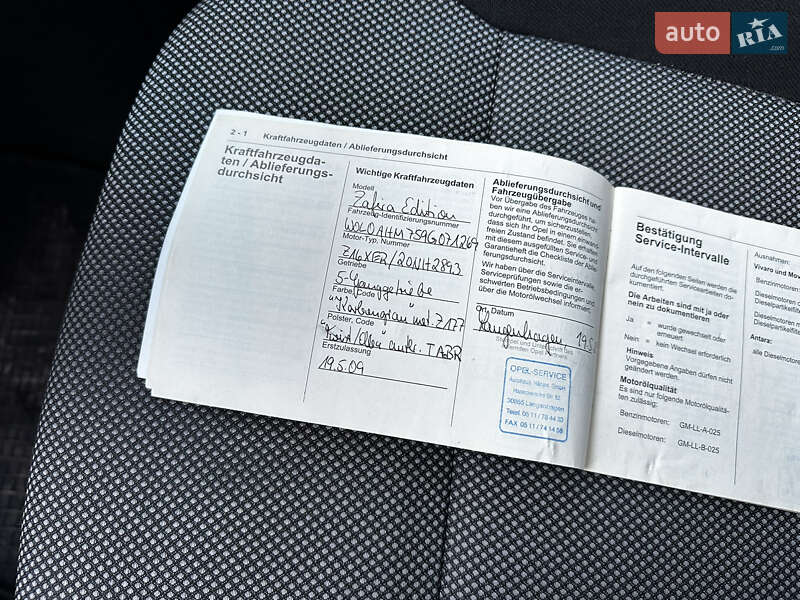 auto RIA
2 - 1 Kraftfahrzeugdaten / Ablieferungsdurchsicht
Kraftfahrzeugda-
ten / Ablieferungs-
durchsicht
Wichtige Kraftfahrzeugdaten
Modell
Zafira Edition
Fahrzeug-Identifizierungsnummer
W0L0AHM759G071269
Motor-Typ, Nummer
Z16XER/20NH2893
Getriebe
5-Ganggetriebe
Farbe, Code
"Karbongrau" met. Z177
Polster, Code
"Twist/Elba" anthr. TABR
Erstzulassung
19.5.09
Ablieferungsdurchsicht und
Fahrzeugübergabe
Vor Übergabe des Fahrzeugs ha-
ben wir eine Ablieferungsdurchsicht
durchgeführt, um sicherzustellen,
dass sich Ihr Opel in einem einwand-
freien Zustand befindet. Sie erhalten
mit diesem ausgefüllten Service- und
Garantieheft die Checkliste der Ablie-
ferungsdurchsicht.
Wir haben über die Serviceintervalle,
Serviceprüfungen sowie die er-
schwerten Betriebsbedingungen und
über die Motorölwechsel informiert.
Ort, Datum
Langenhagen, 19.5.
Stempel und Unterschrift des
OPEL-SERVICE
30855 Langenhagen
Telef. 05 11 / 78 44 33
FAX 05 11 / 74 14 58
Bestätigung
Service-Intervalle
Auf den folgenden Seiten werden die
durchgeführten Servicearbeiten do-
kumentiert.
Die Arbeiten sind mit ja oder
nein zu dokumentieren
Ja = wurde gewechselt oder
erneuert.
Nein = kein Wechsel erforderlich
Hinweis
Vorgegebene Angaben dürfen nicht
geändert werden.
Motorölqualität
Es sind nur folgende Motorölqualitä-
ten zulässig:
Benzinmotoren: GM-LL-A-025
Dieselmotoren: GM-LL-B-025
Ausnahmen:
Vivaro und Mov
Benzinmotoren
Dieselmotoren
Dieselpartikelfilt
Dieselmotoren
Dieselpartikelfilt
Antara:
alle Dieselmotore